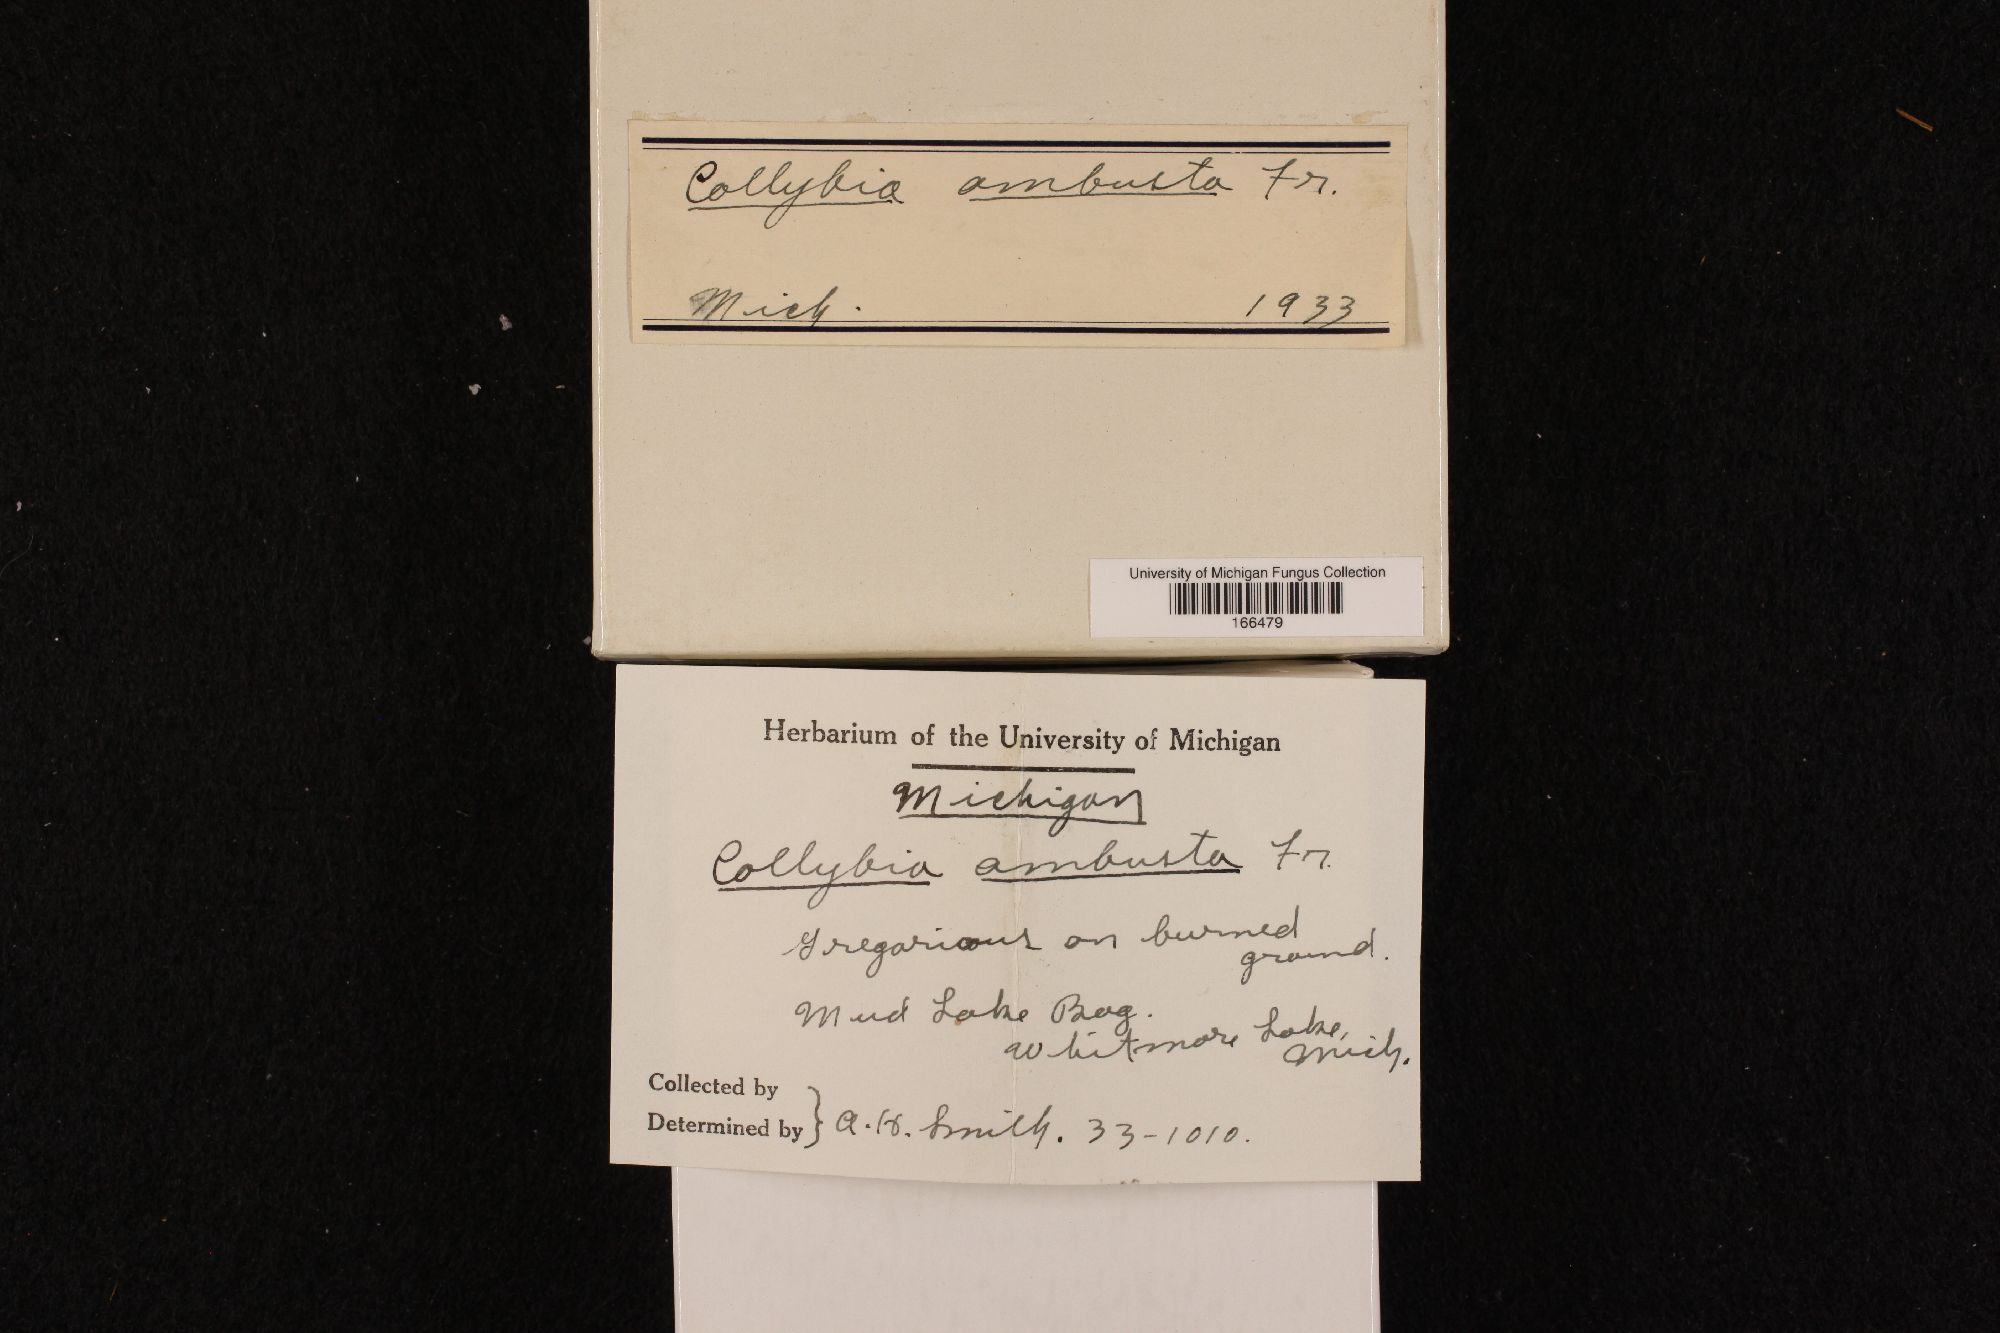 Collybia ambusta Fr.
Mich. 1933
University of Michigan Fungus Collection
166479
Herbarium of the University of Michigan
Michigan
Collybia ambusta Fr.
Gregarious on burned
ground.
Mud Lake Bog.
Whitmore Lake,
Mich.
Collected by
Determined by } A.H. Smith. 33-1010.